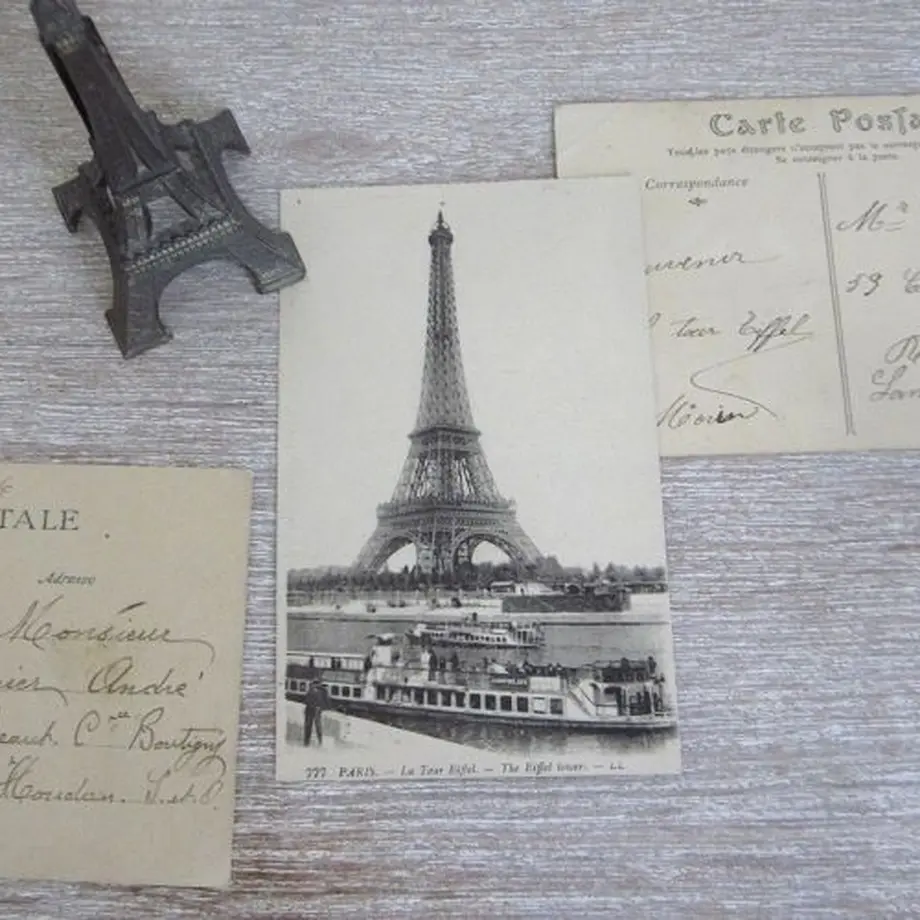 Carte Posta
Tous les pays étrangers n'acceptent pas la corresp
Se renseigner à la poste.
Correspondance
Mr
uvenir
59
tour Eiffel
Morin
TALE
Adresse
Monsieur
nier André
Cne Boutigny
Houdan. S. et O.
777 PARIS. — La Tour Eiffel. — The Eiffel tower. — LL.